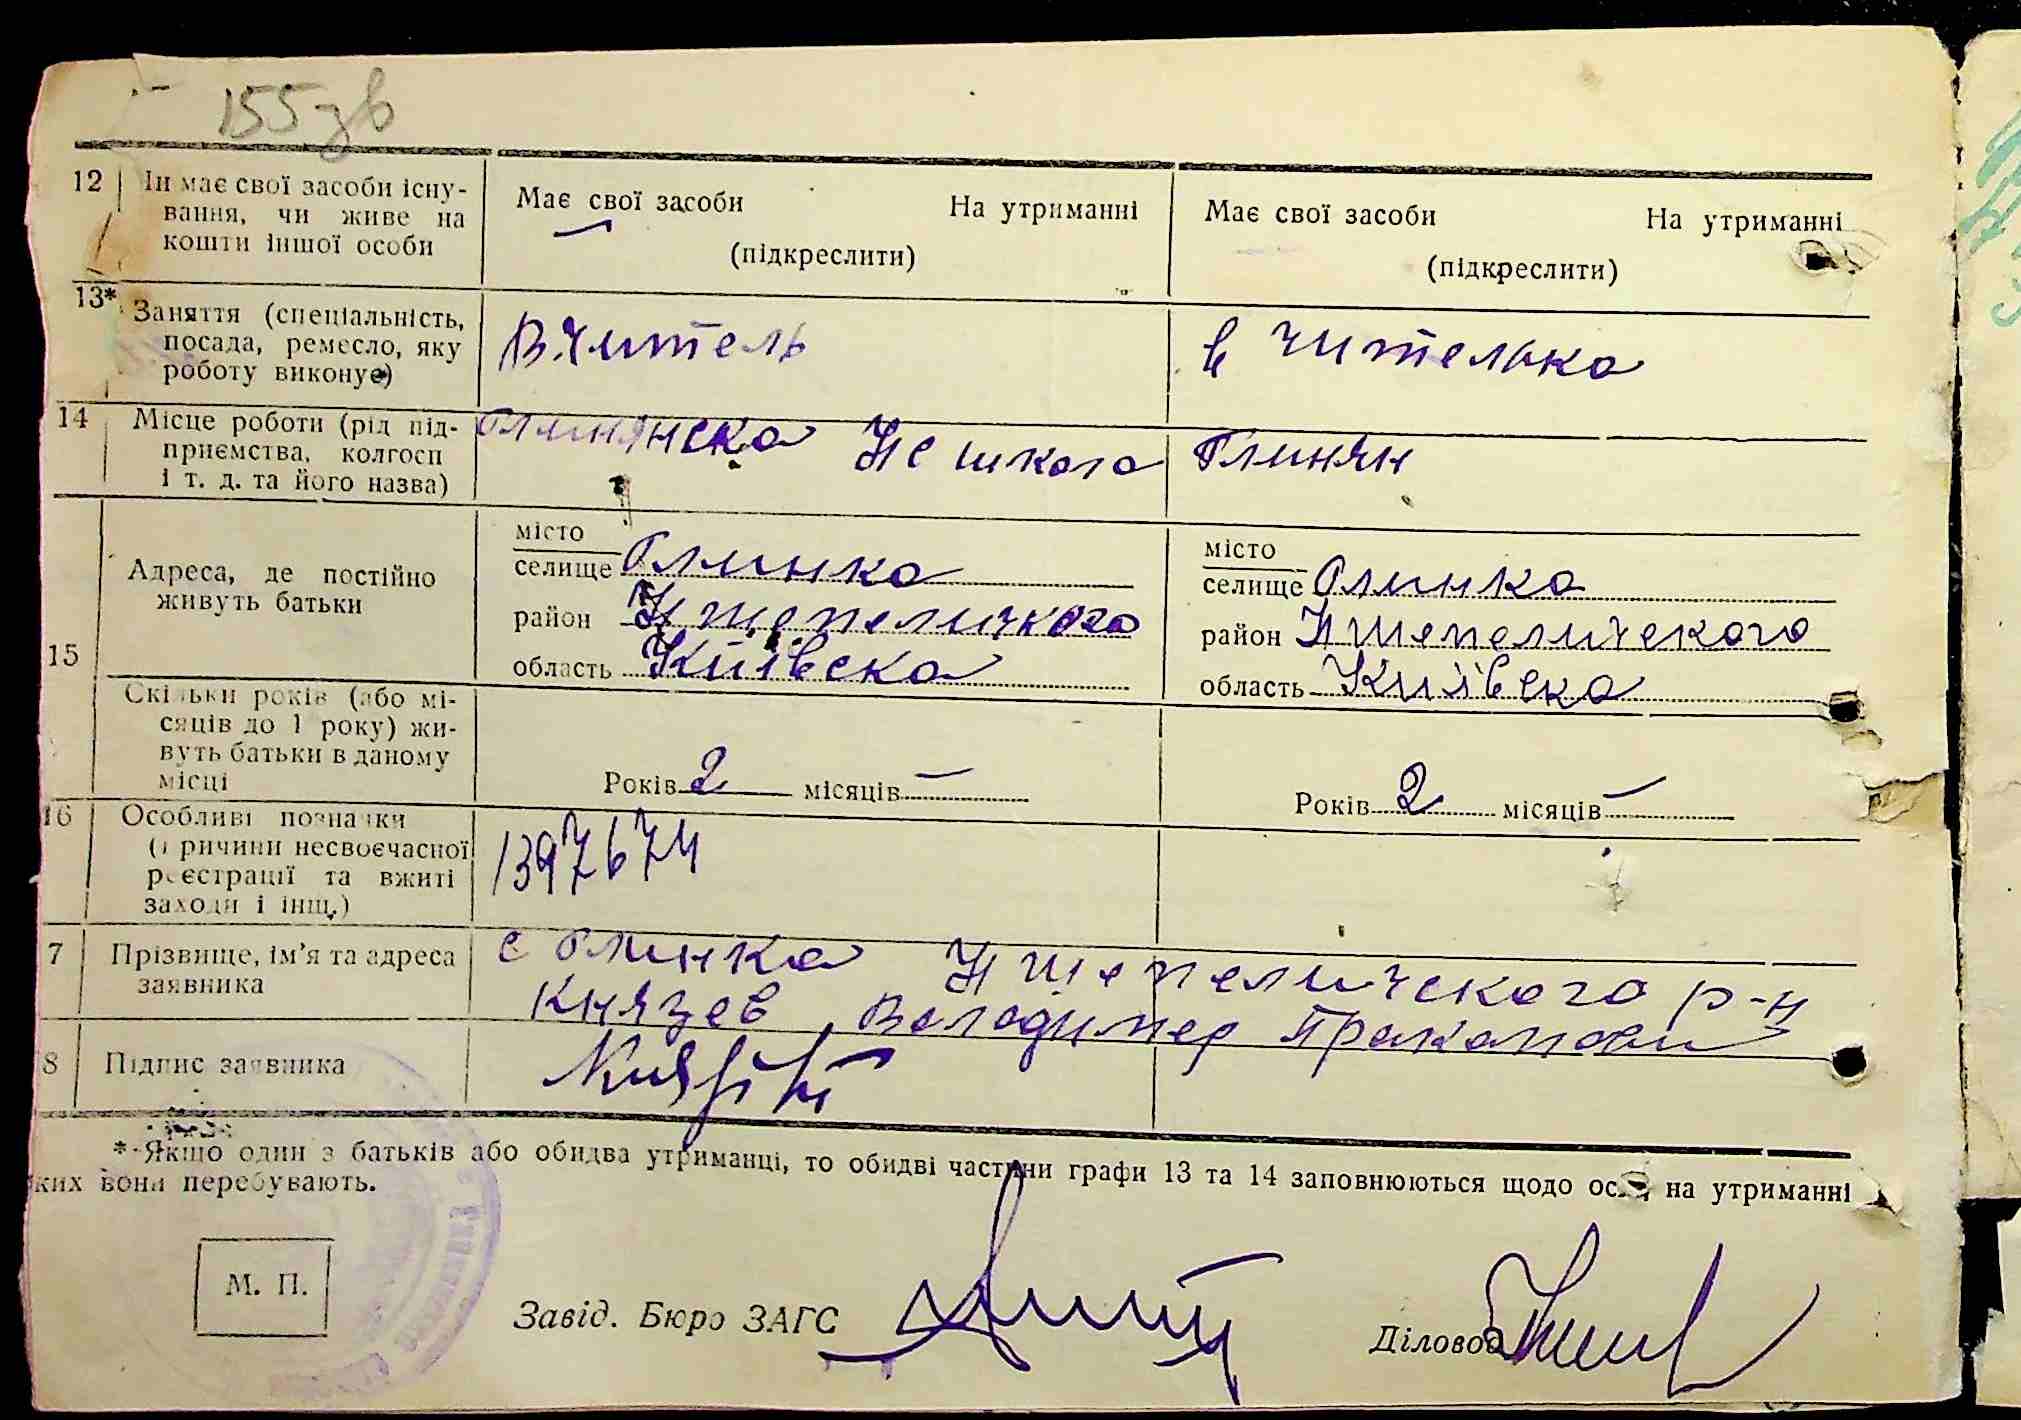 155зв
12 Чи має свої засоби існу-
вання, чи живе на
кошти іншої особи
Має свої засоби На утриманні
(підкреслити)
Має свої засоби На утриманні
(підкреслити)
13* Заняття (спеціальність,
посада, ремесло, яку
роботу виконує)
Вчитель
вчителька
14 Місце роботи (рід під-
приємства, колгосп
і т. д. та його назва)
Глинянска НС школа
Глинян
15
Адреса, де постійно
живуть батьки
місто
селище Глинка
район Ншепеличкого
область Київска
місто
селище Глинка
район Ншепеличского
область Київска
Скільки років (або мі-
сяців до 1 року) жи-
вуть батьки в даному
місці
Років 2 місяців —
Років 2 місяців —
16 Особливі познаки
(причини несвоєчасної
реєстрації та вжиті
заходи і інш.)
1397674
7 Прізвище, ім'я та адреса
заявника
с Глинка Ншепеличского р-н
Князев Володимер
8 Підпис заявника
*-Якщо один з батьків або обидва утриманці, то обидві частини графи 13 та 14 заповнюються щодо на утриманні
ких вони перебувають.
М. П.
Завід. Бюро ЗАГС
Діловод